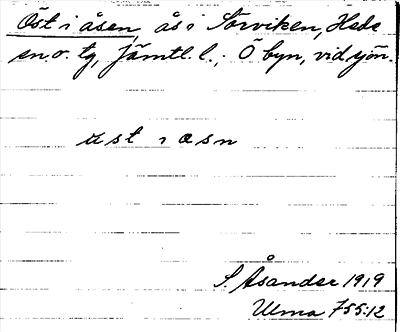 Öst i åsen, ås i Storviken, Hede
sn. o. tg, Jämtl. l.; Ö byn, vid sjön.
ust ı åsn
S. Åsander 1919
Ulma 755:12